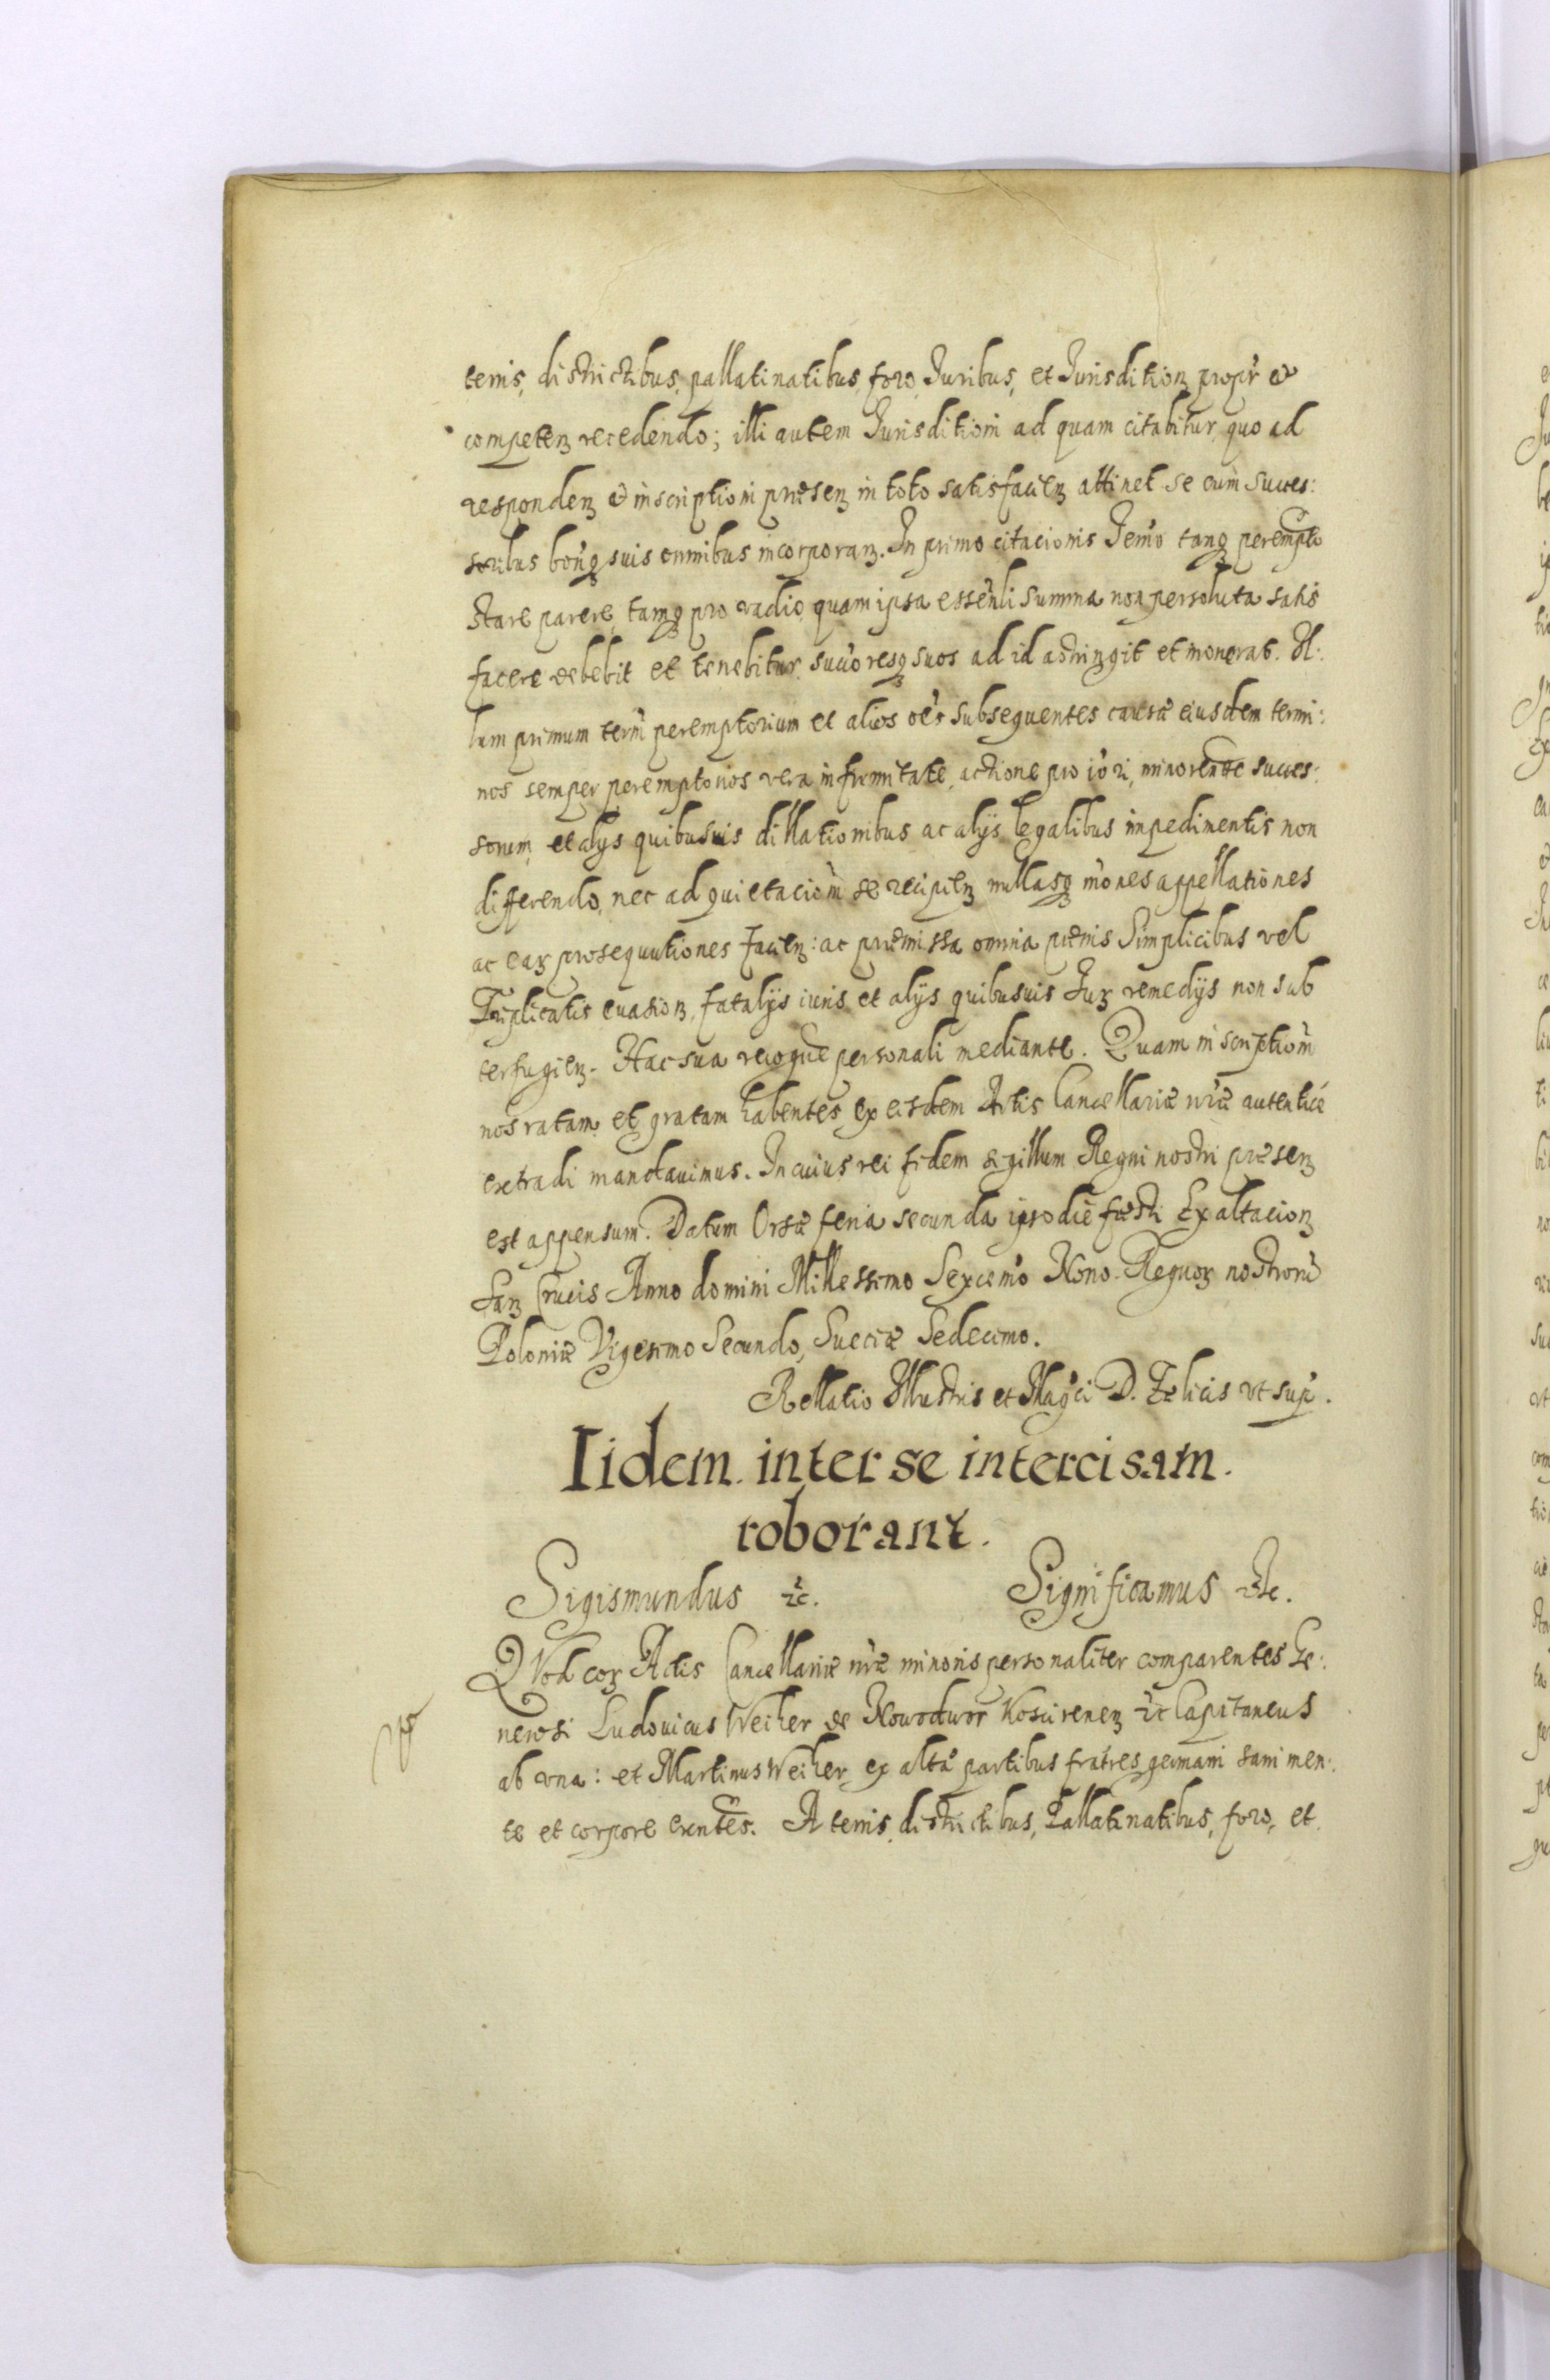 terris, districtibus, pallatinatibus, foro, Iuribus, et Iurisditioꝫ proprˢ et
competeꝫ recedendo; illi autem Iurisditioni ad quam citabitur, quo ad
respondeꝫ et inscriptioni præseꝫ in toto satisfacieꝫ attinet se cum succes:
soribus bonisqꝫ suis omnibus incorporaꝫ. In primo citacionis Termo tanqꝫ perempto
stare parere, tamqꝫ pro vadio, quam ipsa essentli summa non persoluta satis
facere debebit et tenebitur, succoresqꝫ suos ad id astringit et inonerat. Il:
lum primum term peremptorium et alios oēs subsequentes causæ eiusdem termi:
nos semper peremptorios vera infirmitate, actione pro iori, minorente succes:
sorum, et alys quibusuis dillationibus ac alijs legalibus impedimentis non
differendo, nec ad quietaciom se recipieꝫ nullasqꝫ mones appellationes
ac eaꝝ prosequutiones facieꝫ: ac præmissa omnia pænis Simplicibus vel
Triplicatis euasioꝫ, fatalijs iuris et alijs quibusuis Iuꝝ remedijs non sub
terfugieꝫ. Hac sua recogne personali mediante. Quam inscriptiom
nos ratam et gratam habentes ex eisdem Actis Cancellariæ nræ autenticé
extradi mandauimus. In cuius rei fidem sigillum Regni nostri præseꝫ
est appensum. Datum Orsæ feria secunda ipso die fæsti Exaltacioꝫ
Saꝫ Crucis Anno domini Millessimo Sexcemo Nono. Regnoꝝ nostrorū
Poloniæ Vigesimo Secundo, Sueciæ Sedecimo.
Rellatio Illustris et Magci D. Felicis vt supr.
Iidem inter se intercisam
roborant.
Sigismundus ꝛc. Significamus ꝛc.
QVod coꝝ Actis Cancellariæ nræ minoris personaliter comparentes Ge:
nerosi Ludouicus Weiher de Nowodwor Koscireneꝫ ꝛc Capitaneus
ab vna: et Martinus Weiher ex altā partibus fratres germani sani men:
te et corpore exntes. A terris, districtibus, Pallatinatibus, foro, et